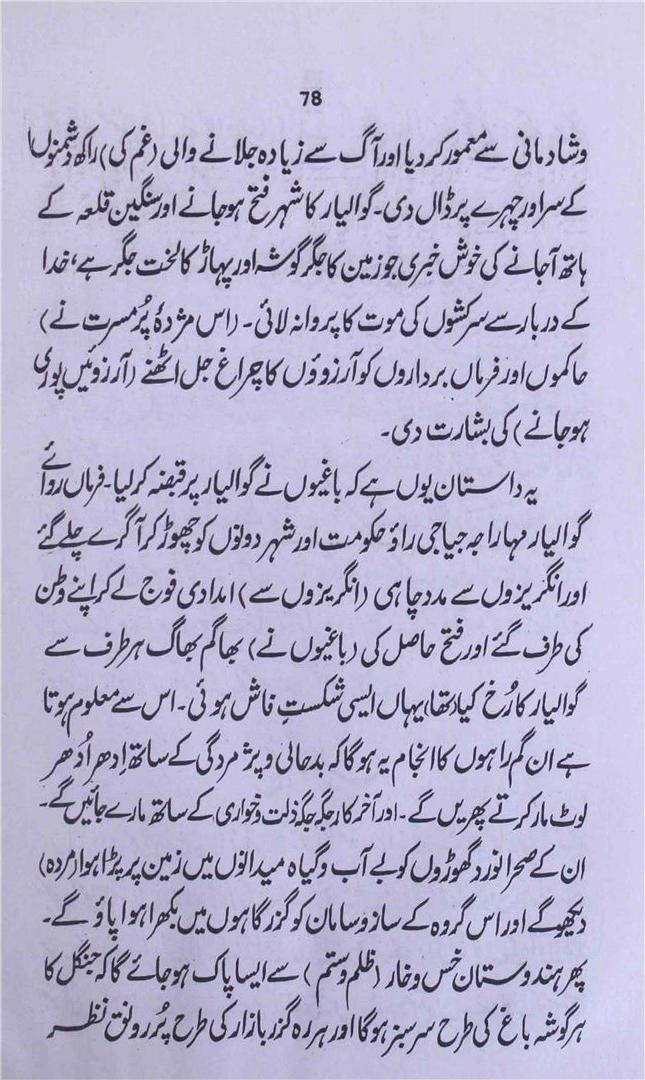 78
و شادمانی سے معمور کر دیا اور آگ سے زیادہ جلانے والی (غم کی) راکھ دشمنوں
کے سر اور چہرے پر ڈال دی۔ گوالیار کا شہر فتح ہو جانے اور سنگین قلعہ کے
ہاتھ آجانے کی خوش خبری جو زمین کا جگر گوشہ اور پہاڑ کا لخت جگر ہے، خدا
کے دربار سے سرکشوں کی موت کا پروانہ لائی۔ (اس مژدۂ پُر مسرت نے)
حاکموں اور فرماں برداروں کو آرزوؤں کا چراغ جل اٹھنے (آرزوئیں پوری
ہو جانے) کی بشارت دی۔
یہ داستان یوں ہے کہ باغیوں نے گوالیار پر قبضہ کر لیا۔ فرماں روائے
گوالیار مہاراجہ جیاجی راؤ حکومت اور شہر دونوں کو چھوڑ کر آگرے چلے گئے
اور انگریزوں سے مدد چاہی (انگریزوں سے) امدادی فوج لے کر اپنے وطن
کی طرف گئے اور فتح حاصل کی (باغیوں نے) بھاگم بھاگ ہر طرف سے
گوالیار کا رُخ کیا تھا، یہاں ایسی شکستِ فاش ہوئی۔ اس سے معلوم ہوتا
ہے ان گم راہوں کا انجام یہ ہوگا کہ بدحالی و پژمردگی کے ساتھ اِدھر اُدھر
لوٹ مار کرتے پھریں گے۔ اور آخر کار جگہ جگہ ذلت و خواری کے ساتھ مارے جائیں گے۔
ان کے صحرا نورد گھوڑوں کو بے آب و گیاہ میدانوں میں زمین پر پڑا ہوا (مردہ)
دیکھو گے اور اس گروہ کے ساز و سامان کو گزرگاہوں میں بکھرا ہوا پاؤ گے۔
پھر ہندوستان خس و خار (ظلم و ستم) سے ایسا پاک ہو جائے گا کہ جنگل کا
ہر گوشہ باغ کی طرح سرسبز ہوگا اور ہر رہ گزر بازار کی طرح پُر رونق نظر